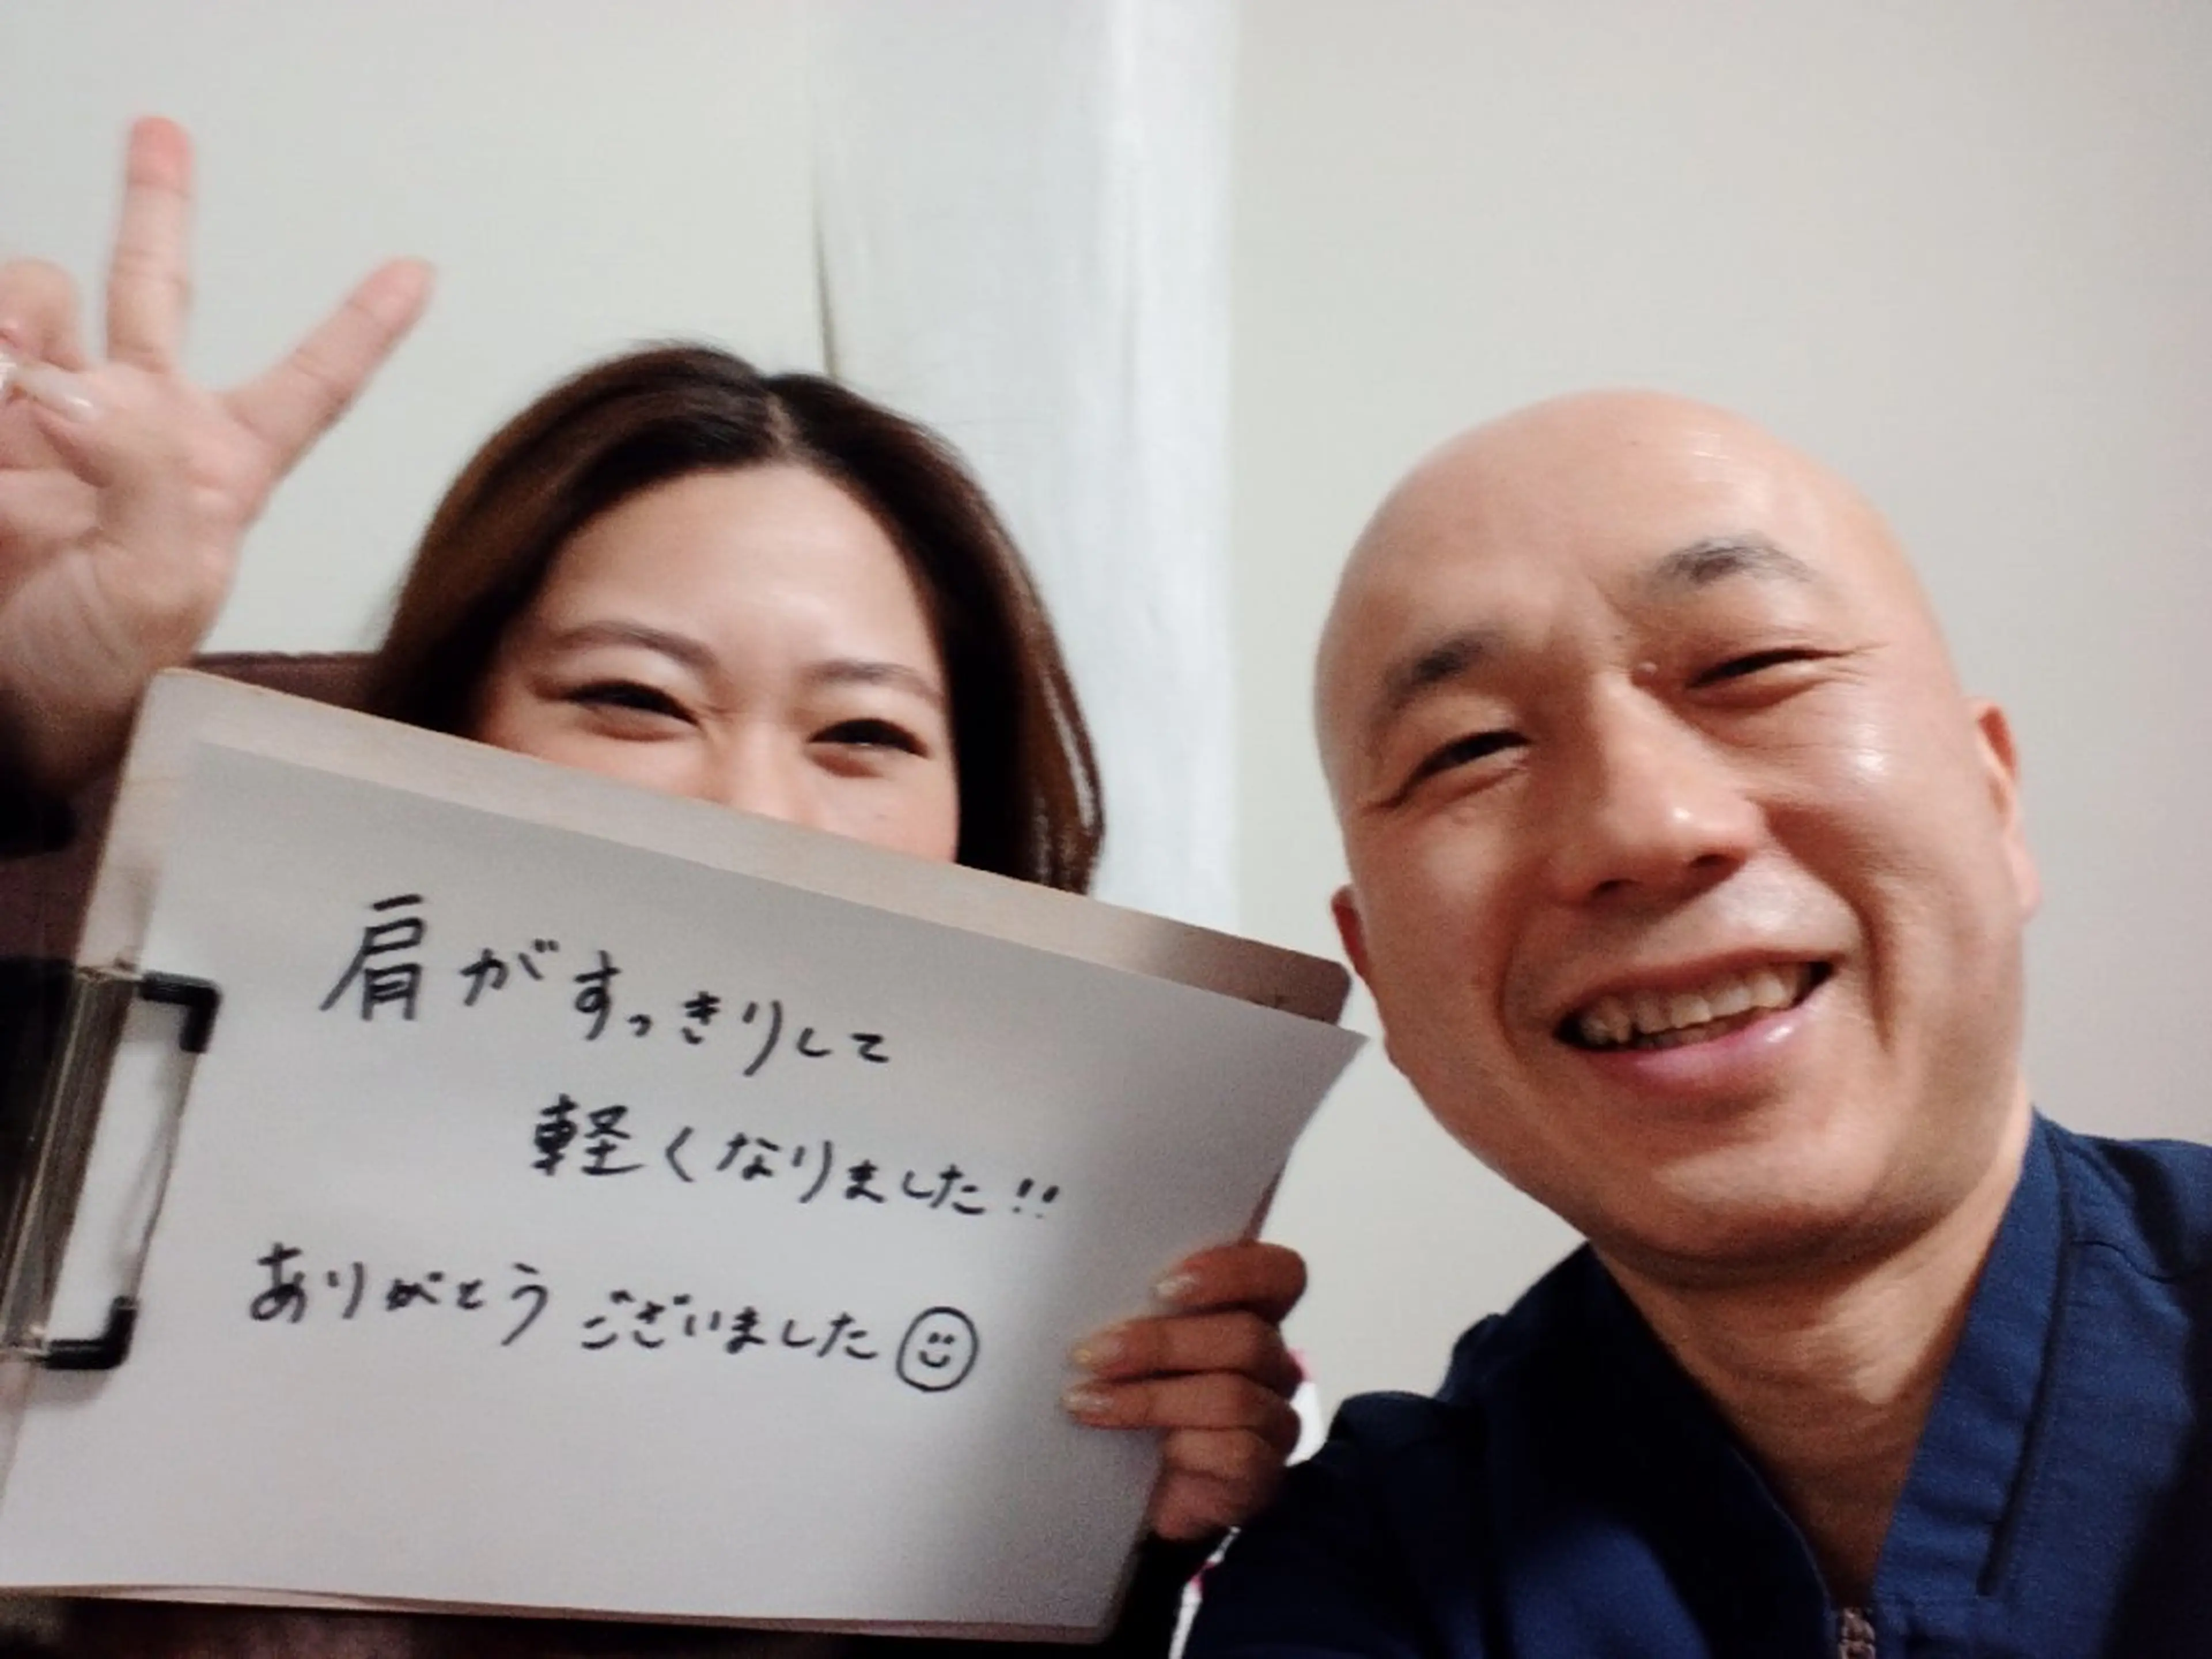 肩がすっきりして
軽くなりました!!
ありがとうございました